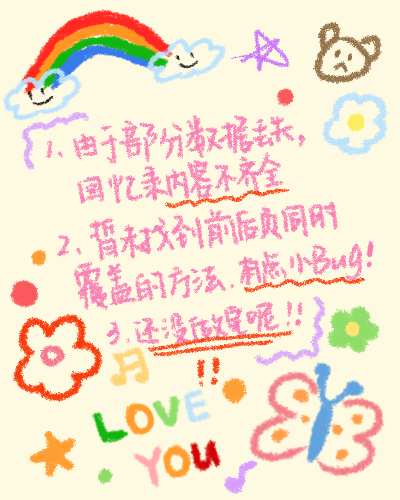 1、由于部分数据丢失，
回忆录内容不齐全
2、暂未找到前后页同时
覆盖的方法，有点小Bug！
3、还没做完呢！！
!!
LOVE
YOU